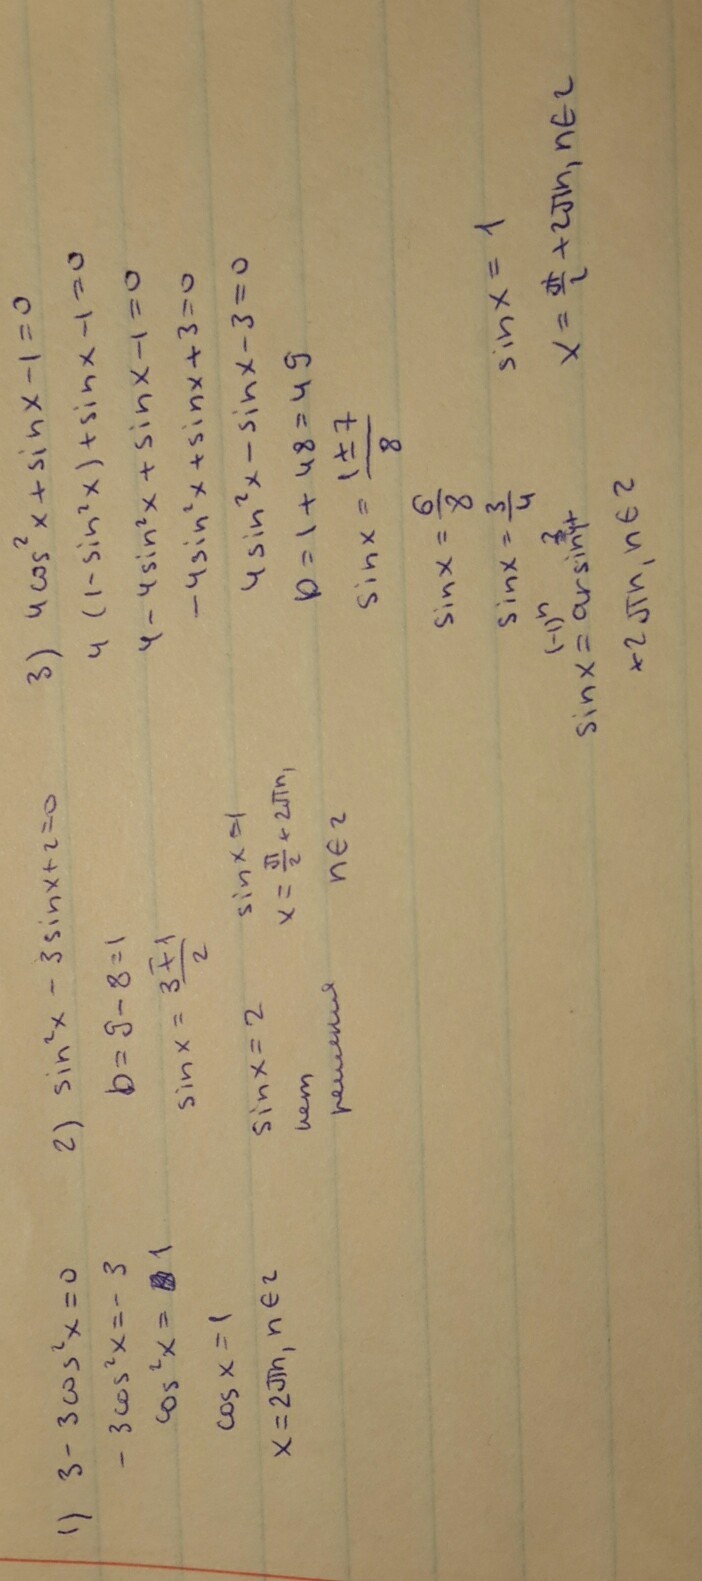 1) 3 - 3cos²x = 0
- 3cos²x = - 3
cos²x = 1
cosx = 1
x = 2πn, n ∈ z
2) sin²x - 3sinx + 2 = 0
D = 9 - 8 = 1
sinx = (3 ± 1)/2
sinx = 2
нет
решения
sinx = 1
x = π/2 + 2πn,
n ∈ z
3) 4cos²x + sinx - 1 = 0
4(1 - sin²x) + sinx - 1 = 0
4 - 4sin²x + sinx - 1 = 0
- 4sin²x + sinx + 3 = 0
4sin²x - sinx - 3 = 0
D = 1 + 48 = 49
sinx = (1 ± 7)/8
sinx = 6/8
sinx = 3/4
sinx = (-1)ⁿ arsin 3/4 +
+ 2πn, n ∈ z
sinx = 1
x = π/2 + 2πn, n ∈ z